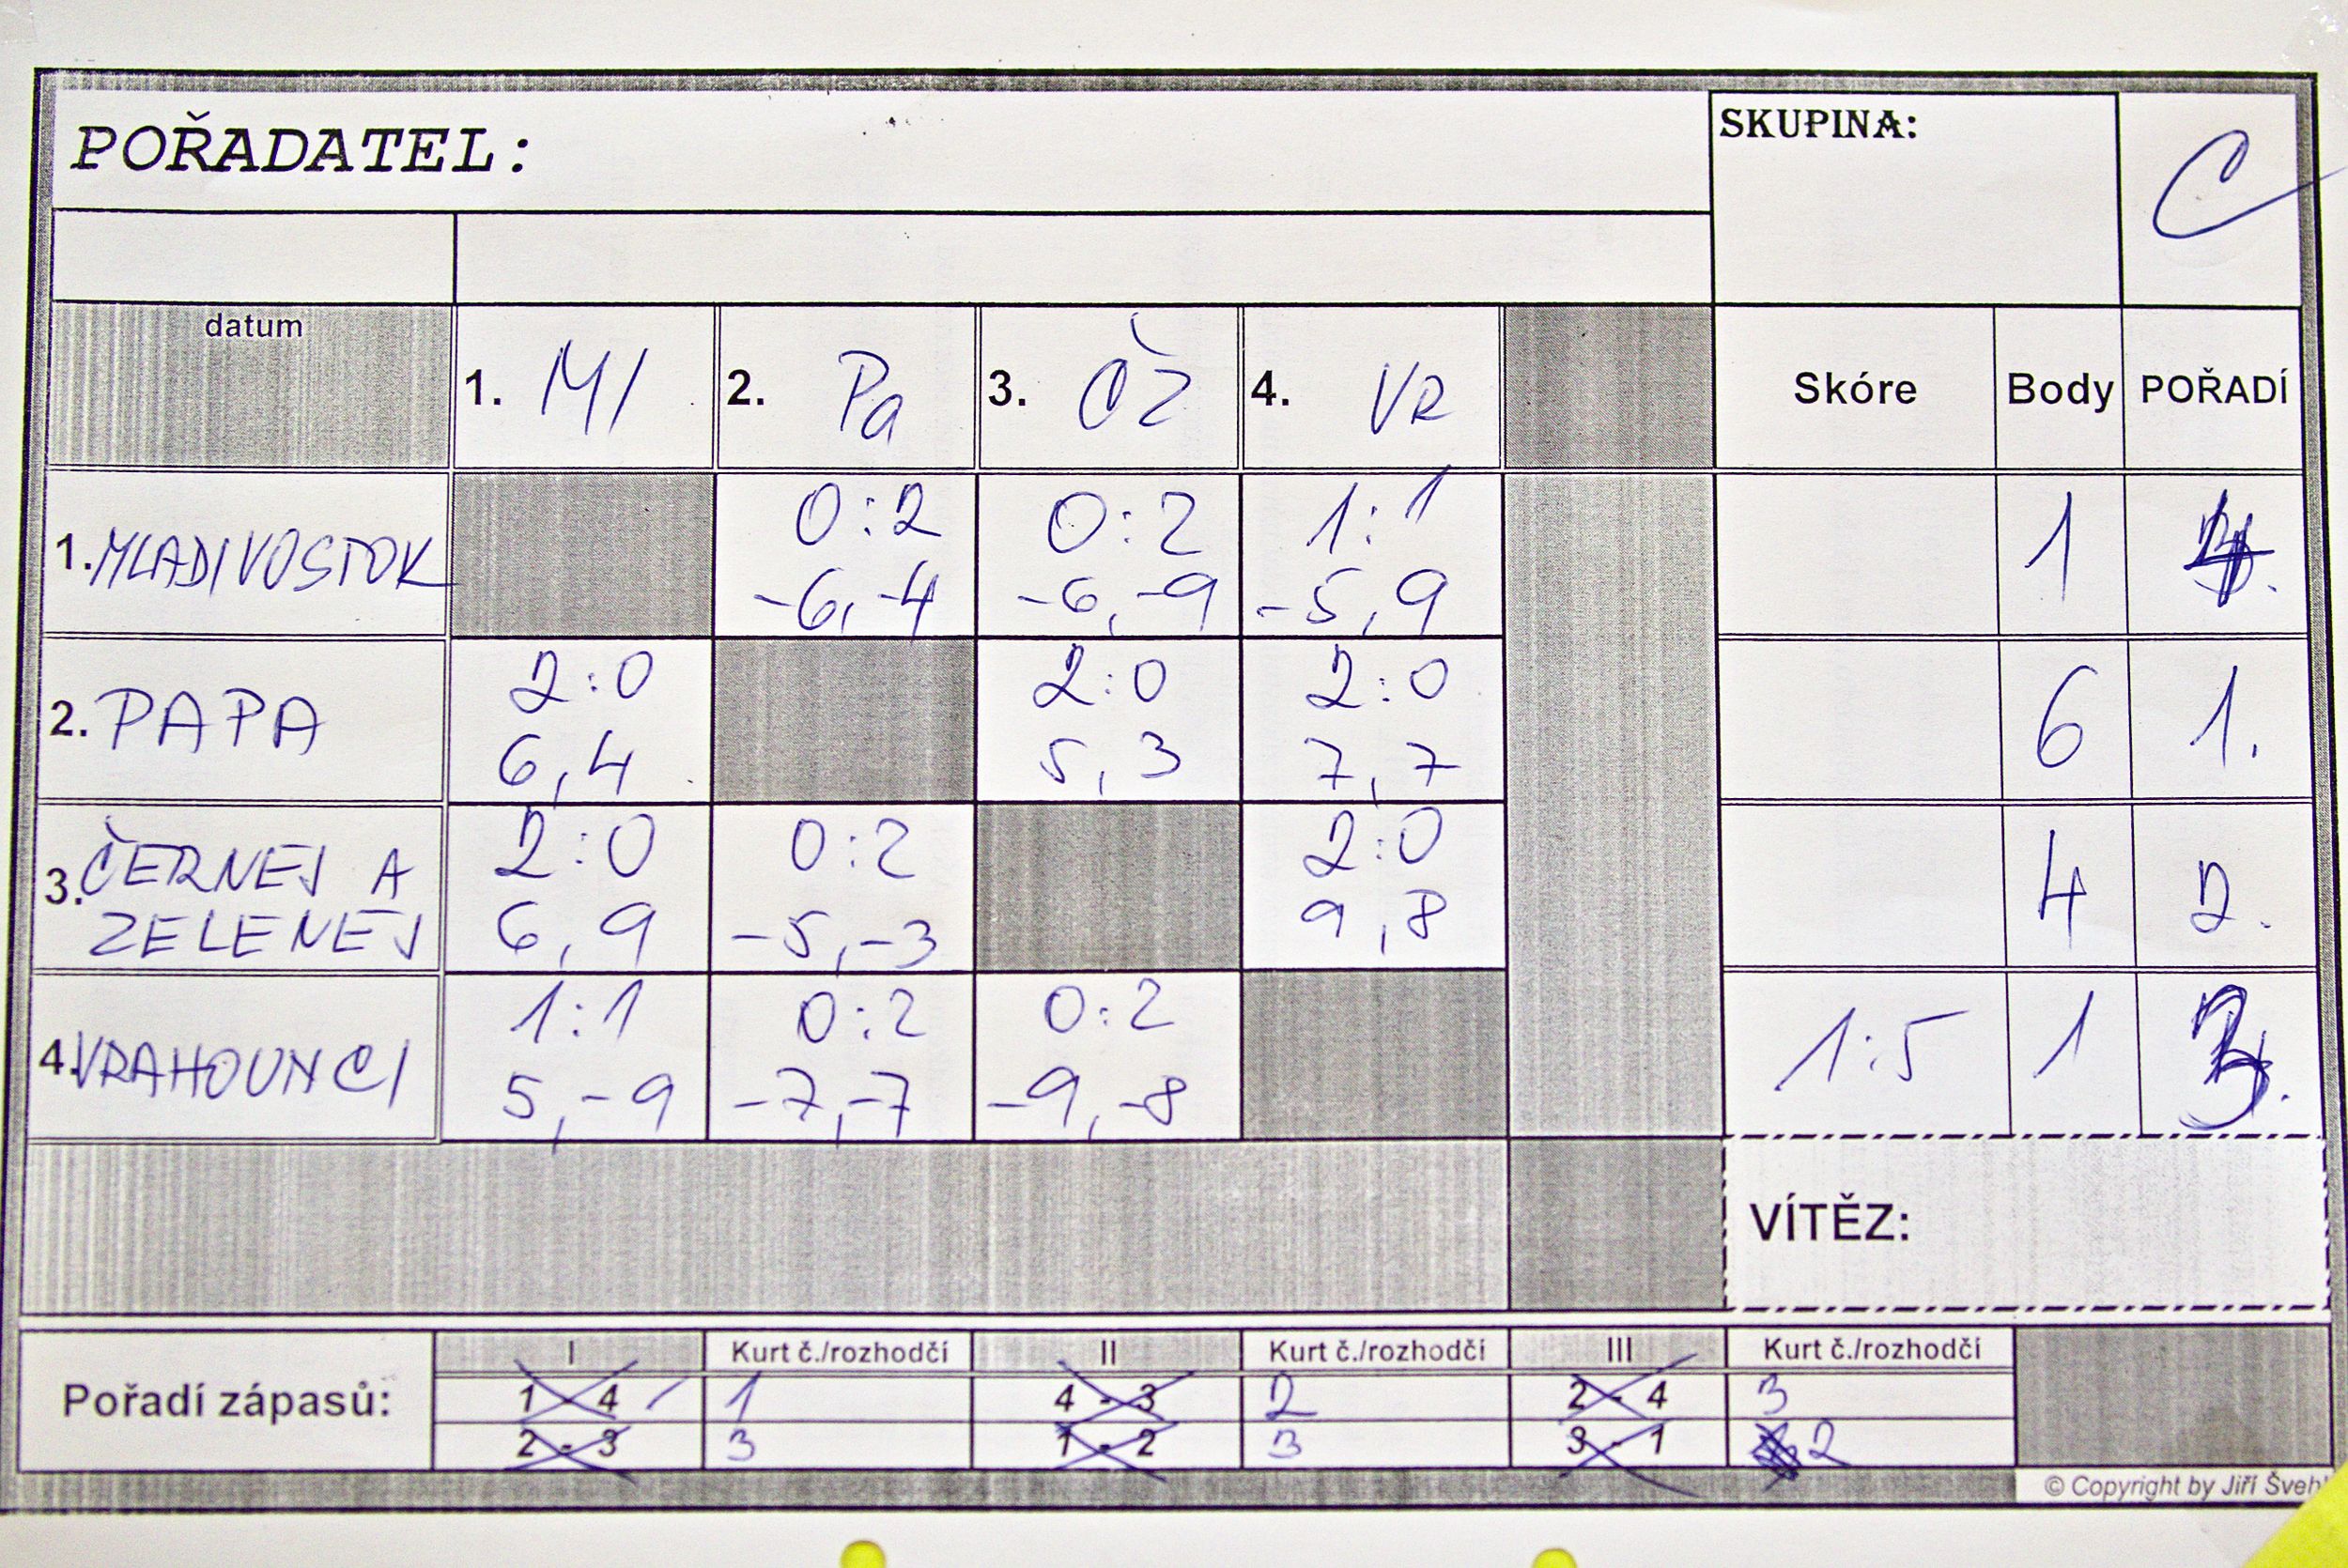 POŘADATEL:
SKUPINA: C
datum 1. Ml 2. Pa 3. ČZ 4. VR Skóre Body POŘADÍ
0:2 0:2 1:1
1. MLADIVOSTOK 1 4.
-6,-4 -6,-9 -5,9
2:0 2:0 2:0
2. PAPA 6 1.
6,4 5,3 7,7
2:0 0:2 2:0
3. ČERNEJ A 4 2.
ZELENEJ 6,9 -5,-3 9,8
1:1 0:2 0:2
4. VRAHOUNCI 1:5 1 3.
5,-9 -7,-7 -9,-8
VÍTĚZ:
I Kurt č./rozhodčí II Kurt č./rozhodčí III Kurt č./rozhodčí
Pořadí zápasů: 1 - 4 1 4 - 3 2 2 - 4 3
2 - 3 3 1 - 2 3 3 - 1 2
© Copyright by Jiří